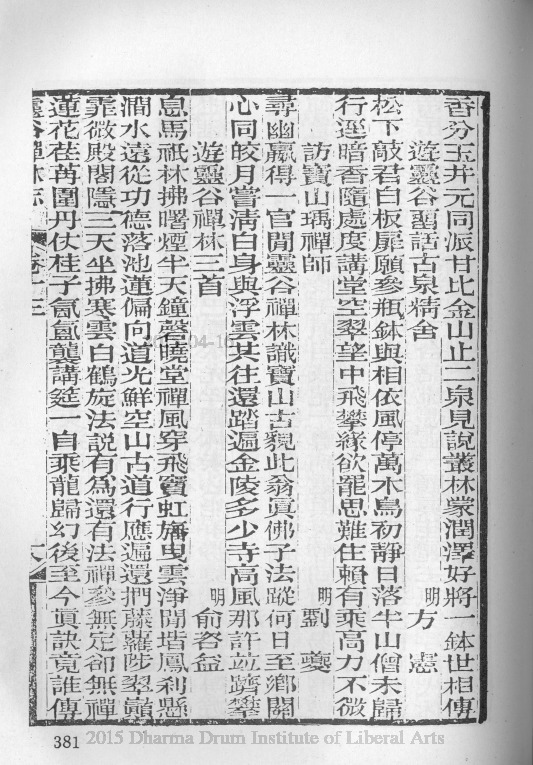 香分玉井元同派甘比金山止二泉見說叢林蒙潤澤好將一鉢世相傳
遊靈谷畱話古泉精舍 明方憲
松下敲君白板扉願參瓶鉢與相依風停萬木鳥初靜日落半山僧未歸
行逕暗香隨處度講堂空翠望中飛攀緣欲罷思難住賴有乘高力不微
訪寶山瑀禪師 明劉夔
尋幽贏得一官閒靈谷禪林識寶山古貌此翁眞佛子法蹤何日至鄉關
心同皎月嘗淸白身與浮雲共往還踏遍金陵多少寺高風那許並躋攀
遊靈谷禪林三首 明俞咨益
息馬祇林拂曙煙半天鐘磬曉堂禪風穿飛寶虹旛曳雲淨閒堦鳳刹懸
澗水遠從功德落池蓮偏向道光鮮空山古道行應遍還捫藤蘿陟翠巓
霏微殿閣隱三天坐拂寒雲白鶴旋法說有爲還有法禪參無定卻無禪
蓮花茬苒圍丹仗桂子氤氳襲講筵一自乘龍歸幻後至今眞訣竟誰傳
靈谷禪林志 卷十三 十八
381 2015 Dharma Drum Institute of Liberal Arts